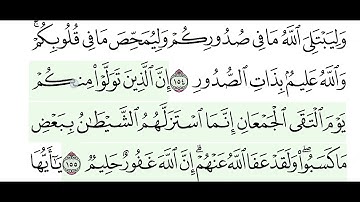 وَلِيَبْتَلِيَ ٱللَّهُ مَا فِى صُدُورِكُمْ وَلِيُمَحِّصَ مَا فِى قُلُوبِكُمْ ۗ
وَٱللَّهُ عَلِيمٌۢ بِذَاتِ ٱلصُّدُورِ ١٥٤ إِنَّ ٱلَّذِينَ تَوَلَّوْا۟ مِنكُمْ
يَوْمَ ٱلْتَقَى ٱلْجَمْعَانِ إِنَّمَا ٱسْتَزَلَّهُمُ ٱلشَّيْطَـٰنُ بِبَعْضِ
مَا كَسَبُوا۟ ۖ وَلَقَدْ عَفَا ٱللَّهُ عَنْهُمْ ۗ إِنَّ ٱللَّهَ غَفُورٌ حَلِيمٌ ١٥٥ يَـٰٓأَيُّهَا